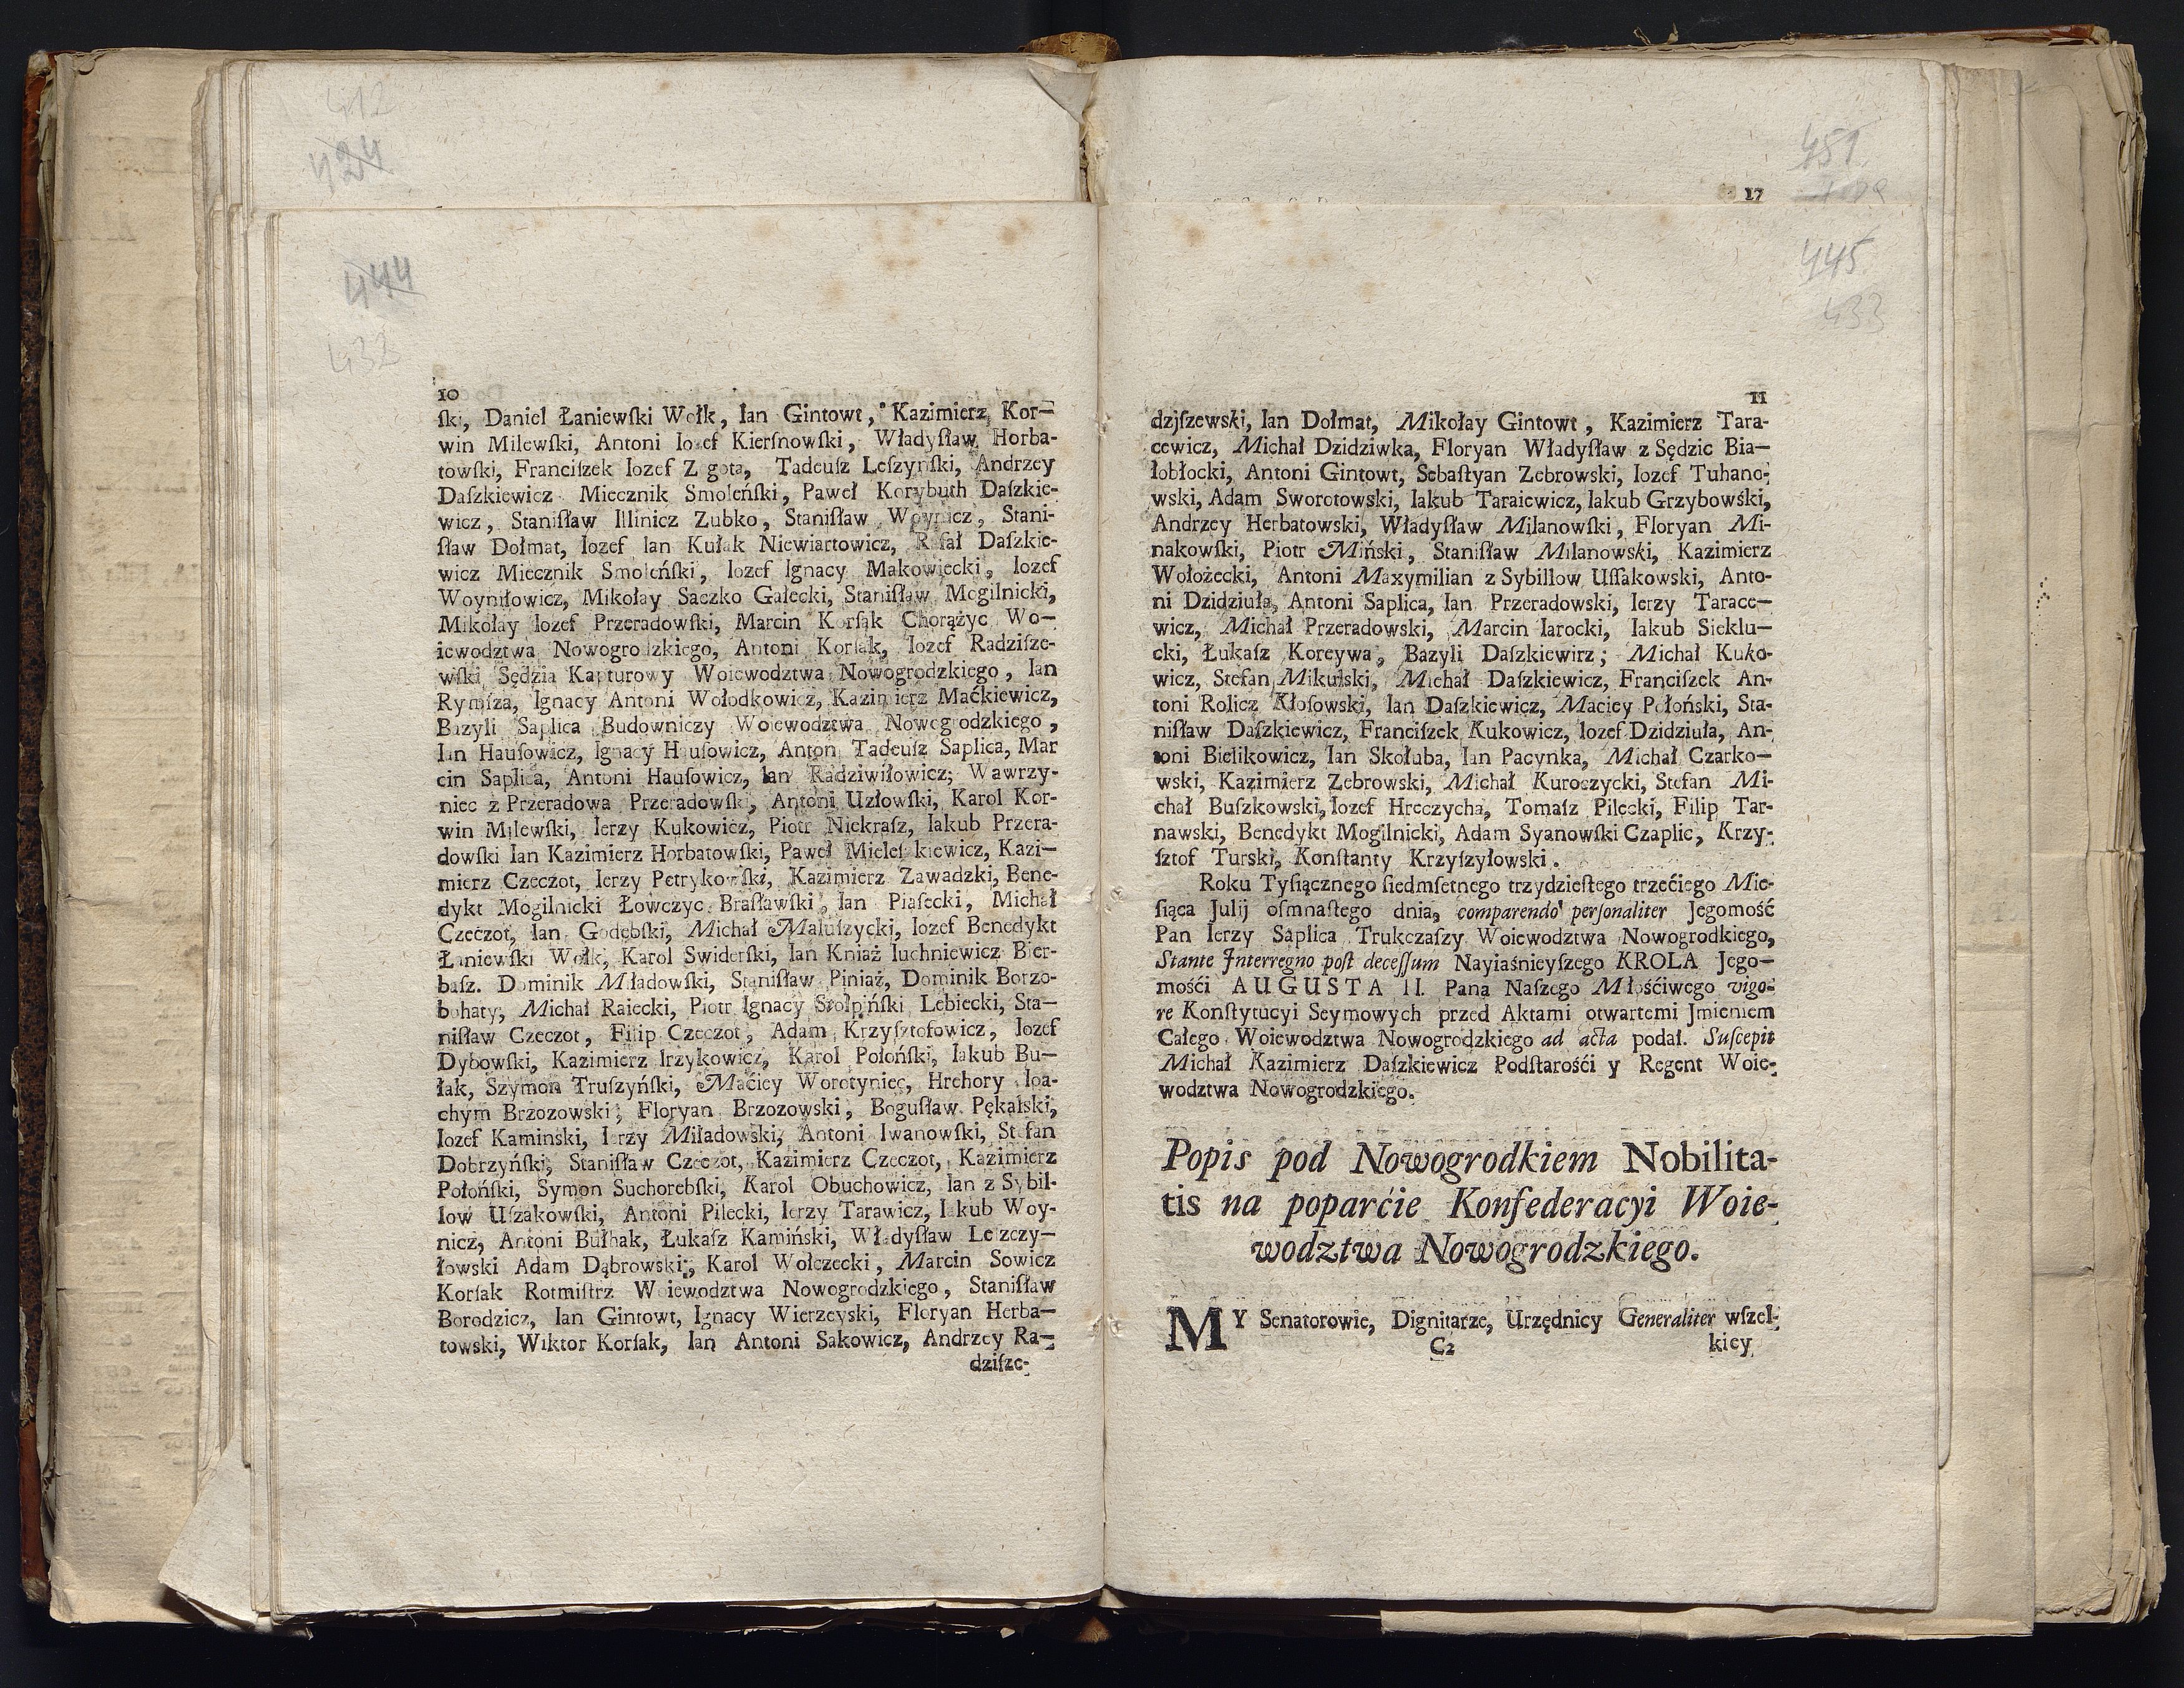 412
424
444
432
10
ſki, Daniel Łaniewſki Wołk, Ian Gintowt, Kazimierz Kor-
win Milewſki, Antoni Iozef Kierſnowſki, Władyſław Horba-
towſki, Franciſzek Iozef Z gota, Tadeuſz Leſzynſki, Andrzey
Daſzkiewicz Miecznik Smoleńſki, Paweł Korybuth Daſzkie-
wicz, Staniſław Illinicz Zubko, Staniſław Woynicz, Stani-
ſław Dołmat, Iozef Ian Kułak Niewiartowicz, Rafał Daſzkie-
wicz Miecznik Smoleńſki, Iozef Ignacy Makowiecki, Iozef
Woyniłowicz, Mikołay Saczko Gałecki, Staniſław Mogilnicki,
Mikołay Iozef Przeradowſki, Marcin Korſak Chorążyc Wo-
iewodztwa Nowogrodzkiego, Antoni Korſak, Iozef Radziſze-
wſki Sędzia Kapturowy Woiewodztwa Nowogrodzkiego, Ian
Rymſza, Ignacy Antoni Wołodkowicz, Kazimierz Maćkiewicz,
Bazyli Saplica Budowniczy Woiewodztwa Nowogrodzkiego,
Ian Hauſowicz, Ignacy Hauſowicz, Anton Tadeuſz Saplica, Mar
cin Saplica, Antoni Hauſowicz, Ian Radziwiłowicz; Wawrzy-
niec z Przeradowa Przeradowſki, Antoni Uzłowſki, Karol Kor-
win Milewſki, Ierzy Kukowicz, Piotr Niekraſz, Iakub Przera-
dowſki Ian Kazimierz Horbatowſki, Paweł Mieleſzkiewicz, Kazi-
mierz Czeczot, Ierzy Petrykowſki, Kazimierz Zawadzki, Bene-
dykt Mogilnicki Łowczyc Braſławſki, Ian Piaſecki, Michał
Czeczot, Ian Godębſki, Michał Maluſzycki, Iozef Benedykt
Łaniewſki Wołk, Karol Swiderſki, Ian Kniaź Iuchniewicz Bier-
baſz. Dominik Miładowſki, Staniſław Piniaż, Dominik Borzo-
bohaty, Michał Raiecki, Piotr Ignacy Stołpińſki Lebiecki, Sta-
niſław Czeczot, Filip Czeczot, Adam Krzyſztofowicz, Iozef
Dybowſki, Kazimierz Irzykowicz, Karol Połońſki, Iakub Bu-
łak, Szymon Truſzyńſki, Maćiey Worotyniec, Hrehory Ioa-
chym Brzozowſki, Floryan Brzozowſki, Boguſław Pękalſki,
Iozef Kaminſki, Ierzy Miładowſki, Antoni Iwanowſki, Stefan
Dobrzyńſki, Staniſław Czeczot, Kazimierz Czeczot, Kazimierz
Połońſki, Symon Suchorebſki, Karol Obuchowicz, Ian z Sybil-
low Uſzakowſki, Antoni Pilecki, Ierzy Tarawicz, Iakub Woy-
nicz, Antoni Bułhak, Łukaſz Kamińſki, Władyſław Leſzczy-
łowski Adam Dąbrowski, Karol Wołczecki, Marcin Sowicz
Korſak Rotmiſtrz Woiewodztwa Nowogrodzkiego, Staniſław
Borodzicz, Ian Gintowt, Ignacy Wierzeyski, Floryan Herba-
towski, Wiktor Korſak, Ian Antoni Sakowicz, Andrzey Ra-
dziſze-
451
17
445
433
11
dziſzewski, Ian Dołmat, Mikołay Gintowt, Kazimierz Tara-
cewicz, Michał Dzidziwka, Floryan Władyſław z Sędzic Bia-
łobłocki, Antoni Gintowt, Sebaſtyan Zebrowski, Iozef Tuhano-
wski, Adam Sworotowski, Iakub Taraiewicz, Iakub Grzybowśki,
Andrzey Herbatowski, Władyſław Milanowſki, Floryan Mi-
nakowſki, Piotr Miński, Staniſław Milanowski, Kazimierz
Wołożecki, Antoni Maxymilian z Sybillow Uſſakowski, Anto-
ni Dzidziuła, Antoni Saplica, Ian Przeradowski, Ierzy Tarace-
wicz, Michał Przeradowski, Marcin Iarocki, Iakub Sieklu-
cki, Łukaſz Koreywa, Bazyli Daſzkiewirz; Michał Kuko-
wicz, Stefan Mikulski, Michał Daſzkiewicz, Franciſzek An-
toni Rolicz Kłoſowski, Ian Daſzkiewicz, Maciey Połoński, Sta-
niſław Daſzkiewicz, Franciſzek Kukowicz, Iozef Dzidziuła, An-
toni Bielikowicz, Ian Skołuba, Ian Pacynka, Michał Czarko-
wski, Kazimierz Zebrowski, Michał Kuroczycki, Stefan Mi-
chał Buſzkowski, Iozef Hreczycha, Tomaſz Pilecki, Filip Tar-
nawski, Benedykt Mogilnicki, Adam Syanowſki Czaplic, Krzy-
ſztof Turski, Konſtanty Krzyſzyłowski.
Roku Tyſiącznego ſiedmſetnego trzydzieſtego trzećiego Mie-
ſiąca Julij oſmnaſtego dnia, comparendo perſonaliter Jegomość
Pan Ierzy Saplica Trukczaſzy Woiewodztwa Nowogrodkiego,
Stante Jnterregno poſt deceſſum Nayiaśnieyſzego KROLA Jego-
mośći AUGUSTA II. Pana Naſzego Młośćiwego vigo-
re Konſtytucyi Seymowych przed Aktami otwartemi Jmieniem
Całego Woiewodztwa Nowogrodzkiego ad acta podał. Suſcepit
Michał Kazimierz Daſzkiewicz Podſtarośći y Regent Woie-
wodztwa Nowogrodzkiego.
Popis pod Nowogrodkiem Nobilita-
tis na poparćie Konfederacyi Woie-
wodztwa Nowogrodzkiego.
MY Senatorowie, Dignitarze, Urzędnicy Generaliter wſzel-
C2 kiey